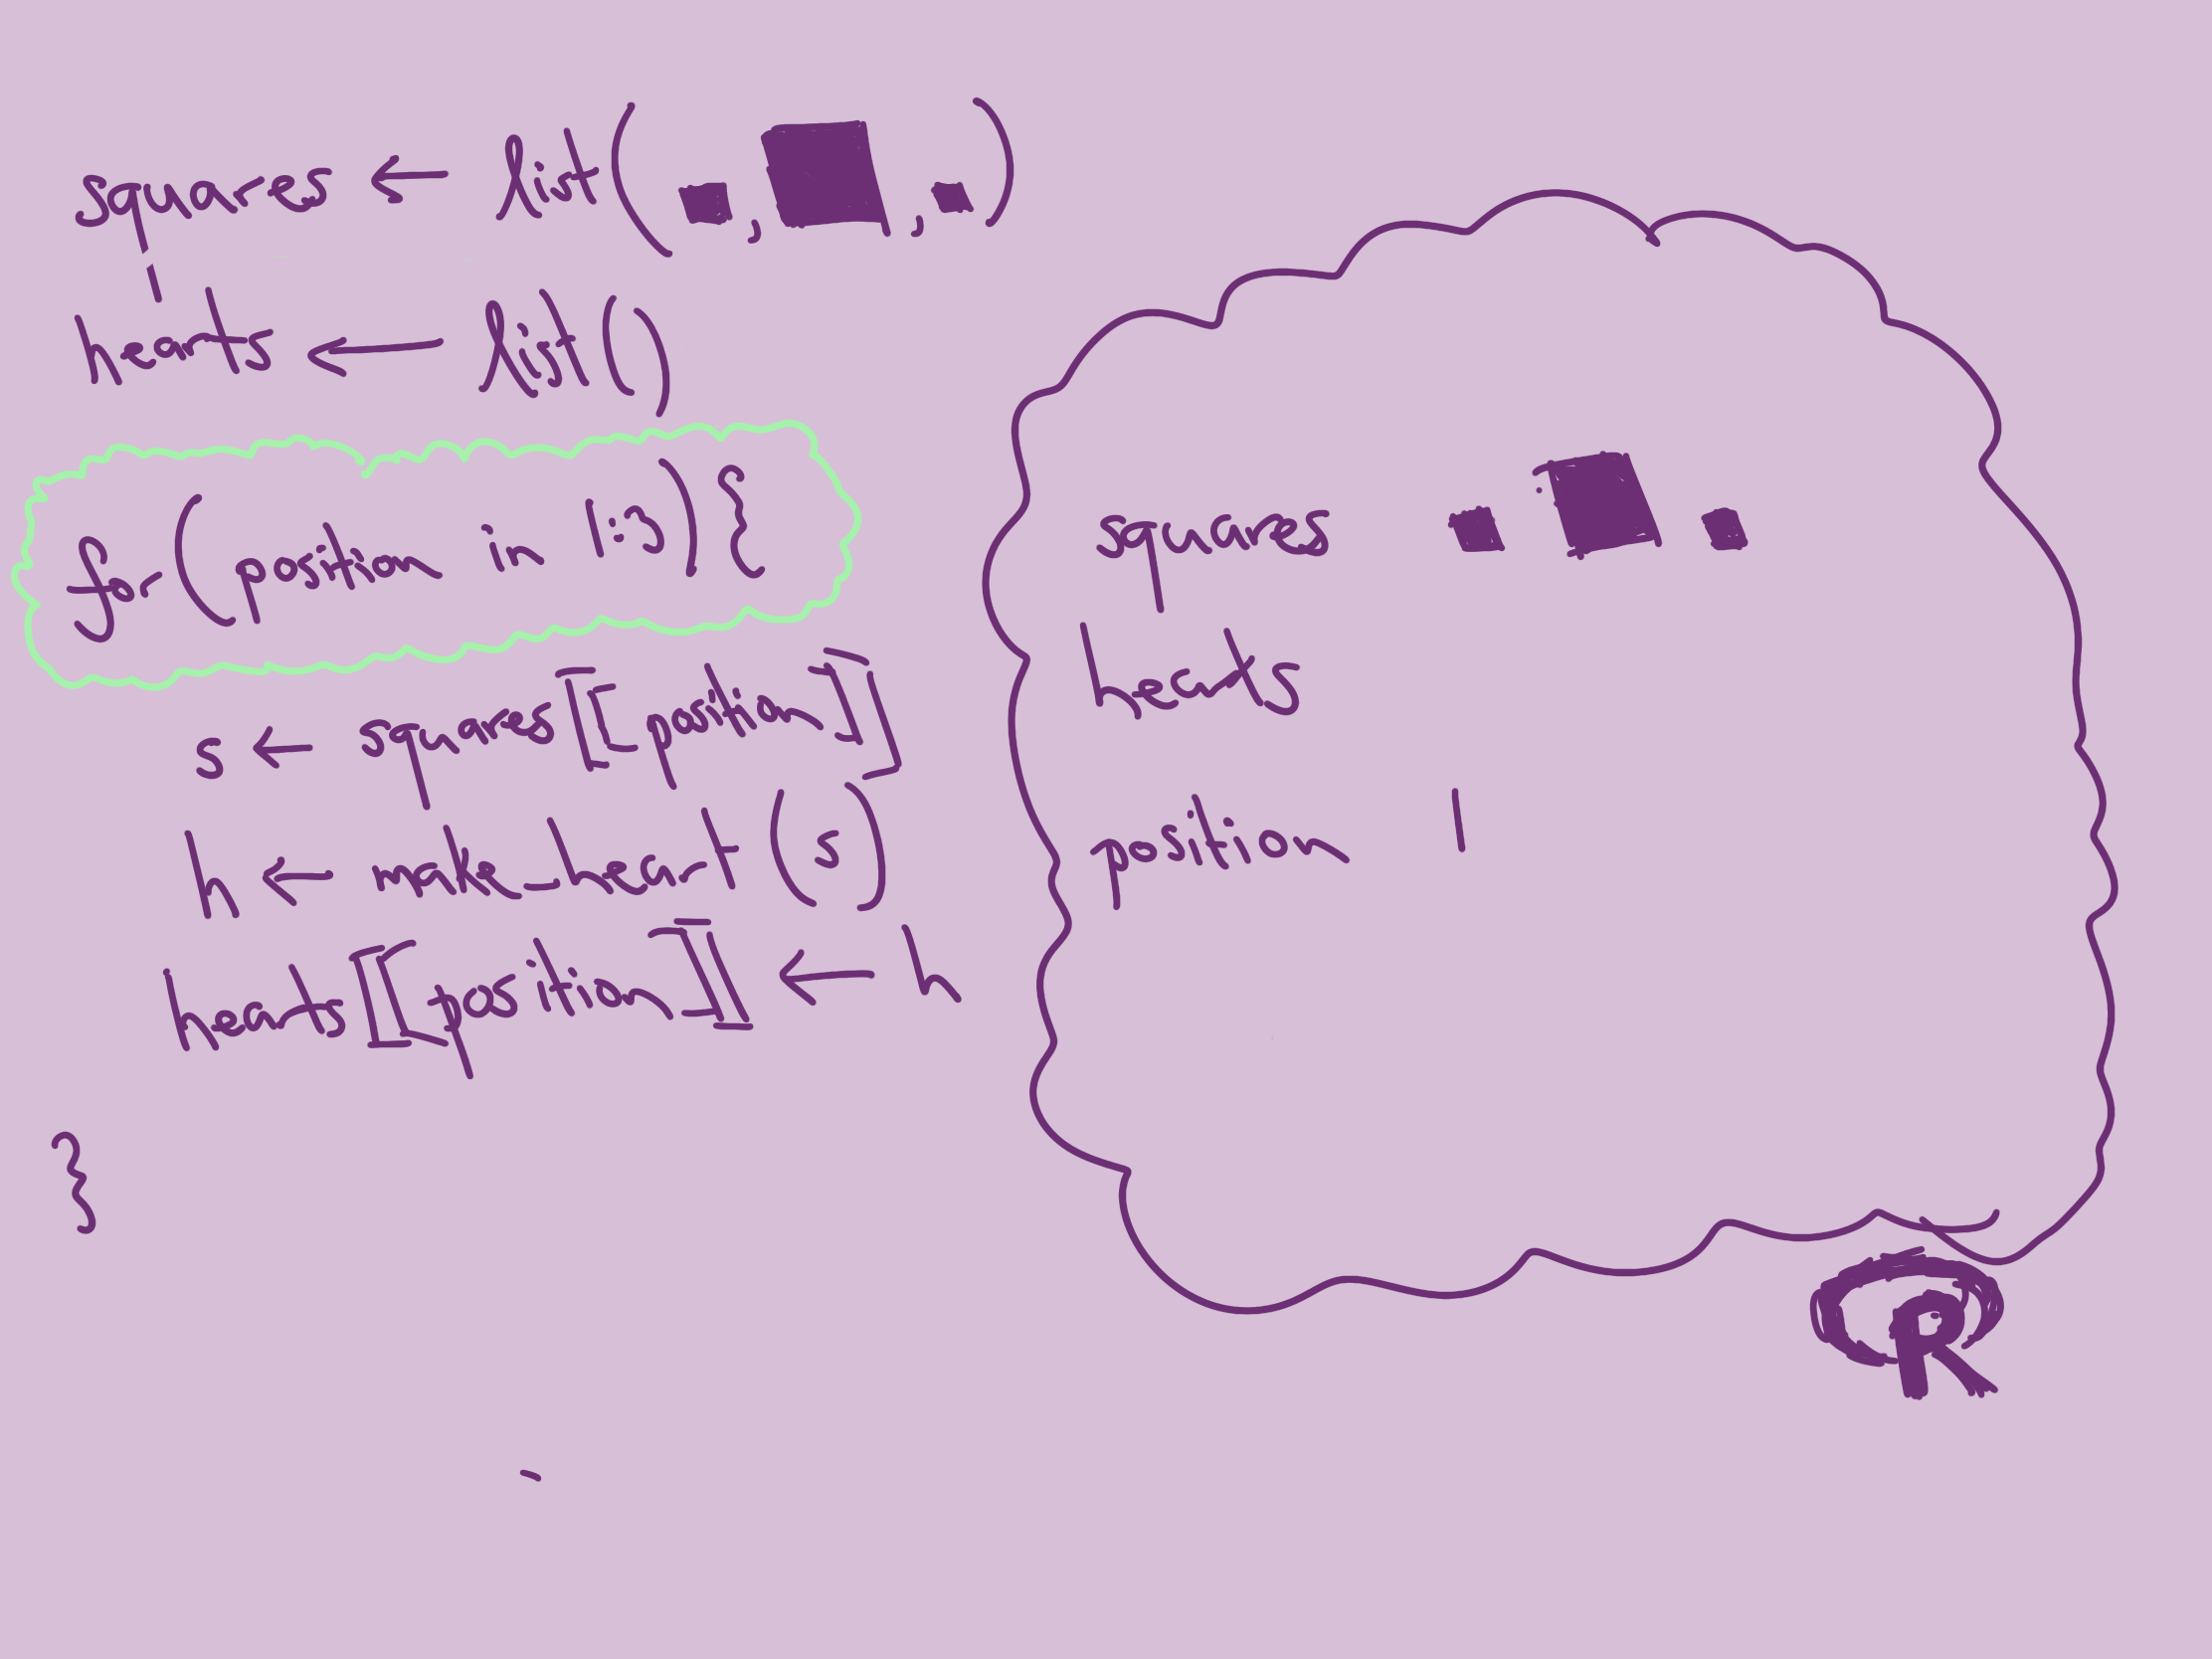 squares ← list(■, ■, ■)
hearts ← list()
for (position in 1:3) {
s ← squares[[position]]
h ← make_heart(s)
hearts[[position]] ← h
}
squares ■ ■ ■
hearts
position 1
R